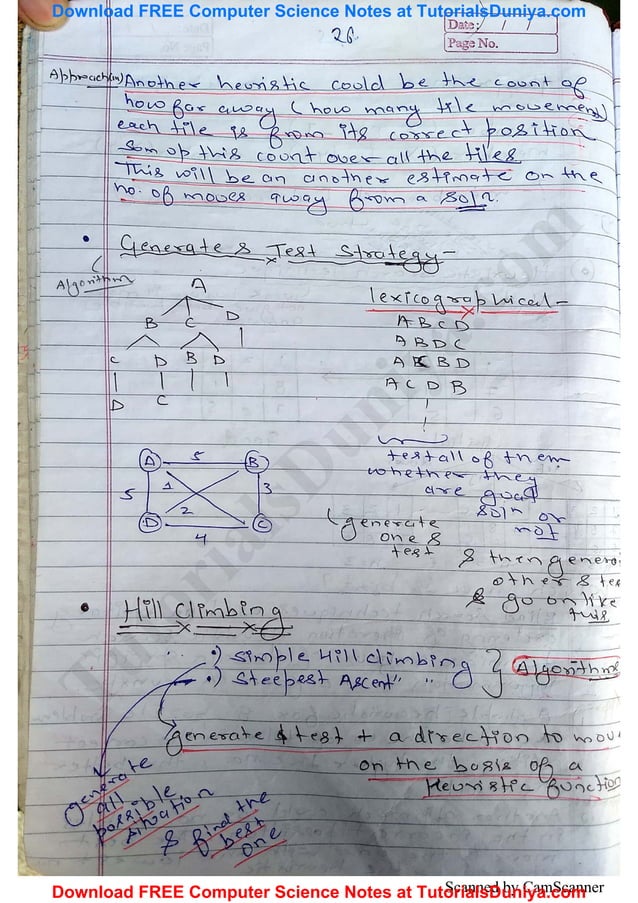 Download FREE Computer Science Notes at TutorialsDuniya.com
26
Date: / /
Page No.
Approach (iii) Another heuristic could be the count of
how far away (how many tile movement)
each tile is from its correct position
Som op this count over all the tiles
This will be an another estimate on the
no. of moves away from a soln.
• Generate & Test Strategy –
Algorithm
A
B C D
C D B D
D C
lexicographical –
A B C D
A B D C
A C B D
A C D B
test all of them
whether they
are goal
soln or
not
(generate
one &
test & then genera
other & tes
& go on like
this
A 5 B
5 1 3
2
D 4 C
• Hill Climbing
•) Simple Hill climbing
•) Steepest Ascent " "
Algorithms
generate & test + a direction to mov
on the basis of a
Heuristic function
generate
all
possible
situation
& find the
best
one
TutorialsDuniya.com
Scanned by CamScanner
Download FREE Computer Science Notes at TutorialsDuniya.com